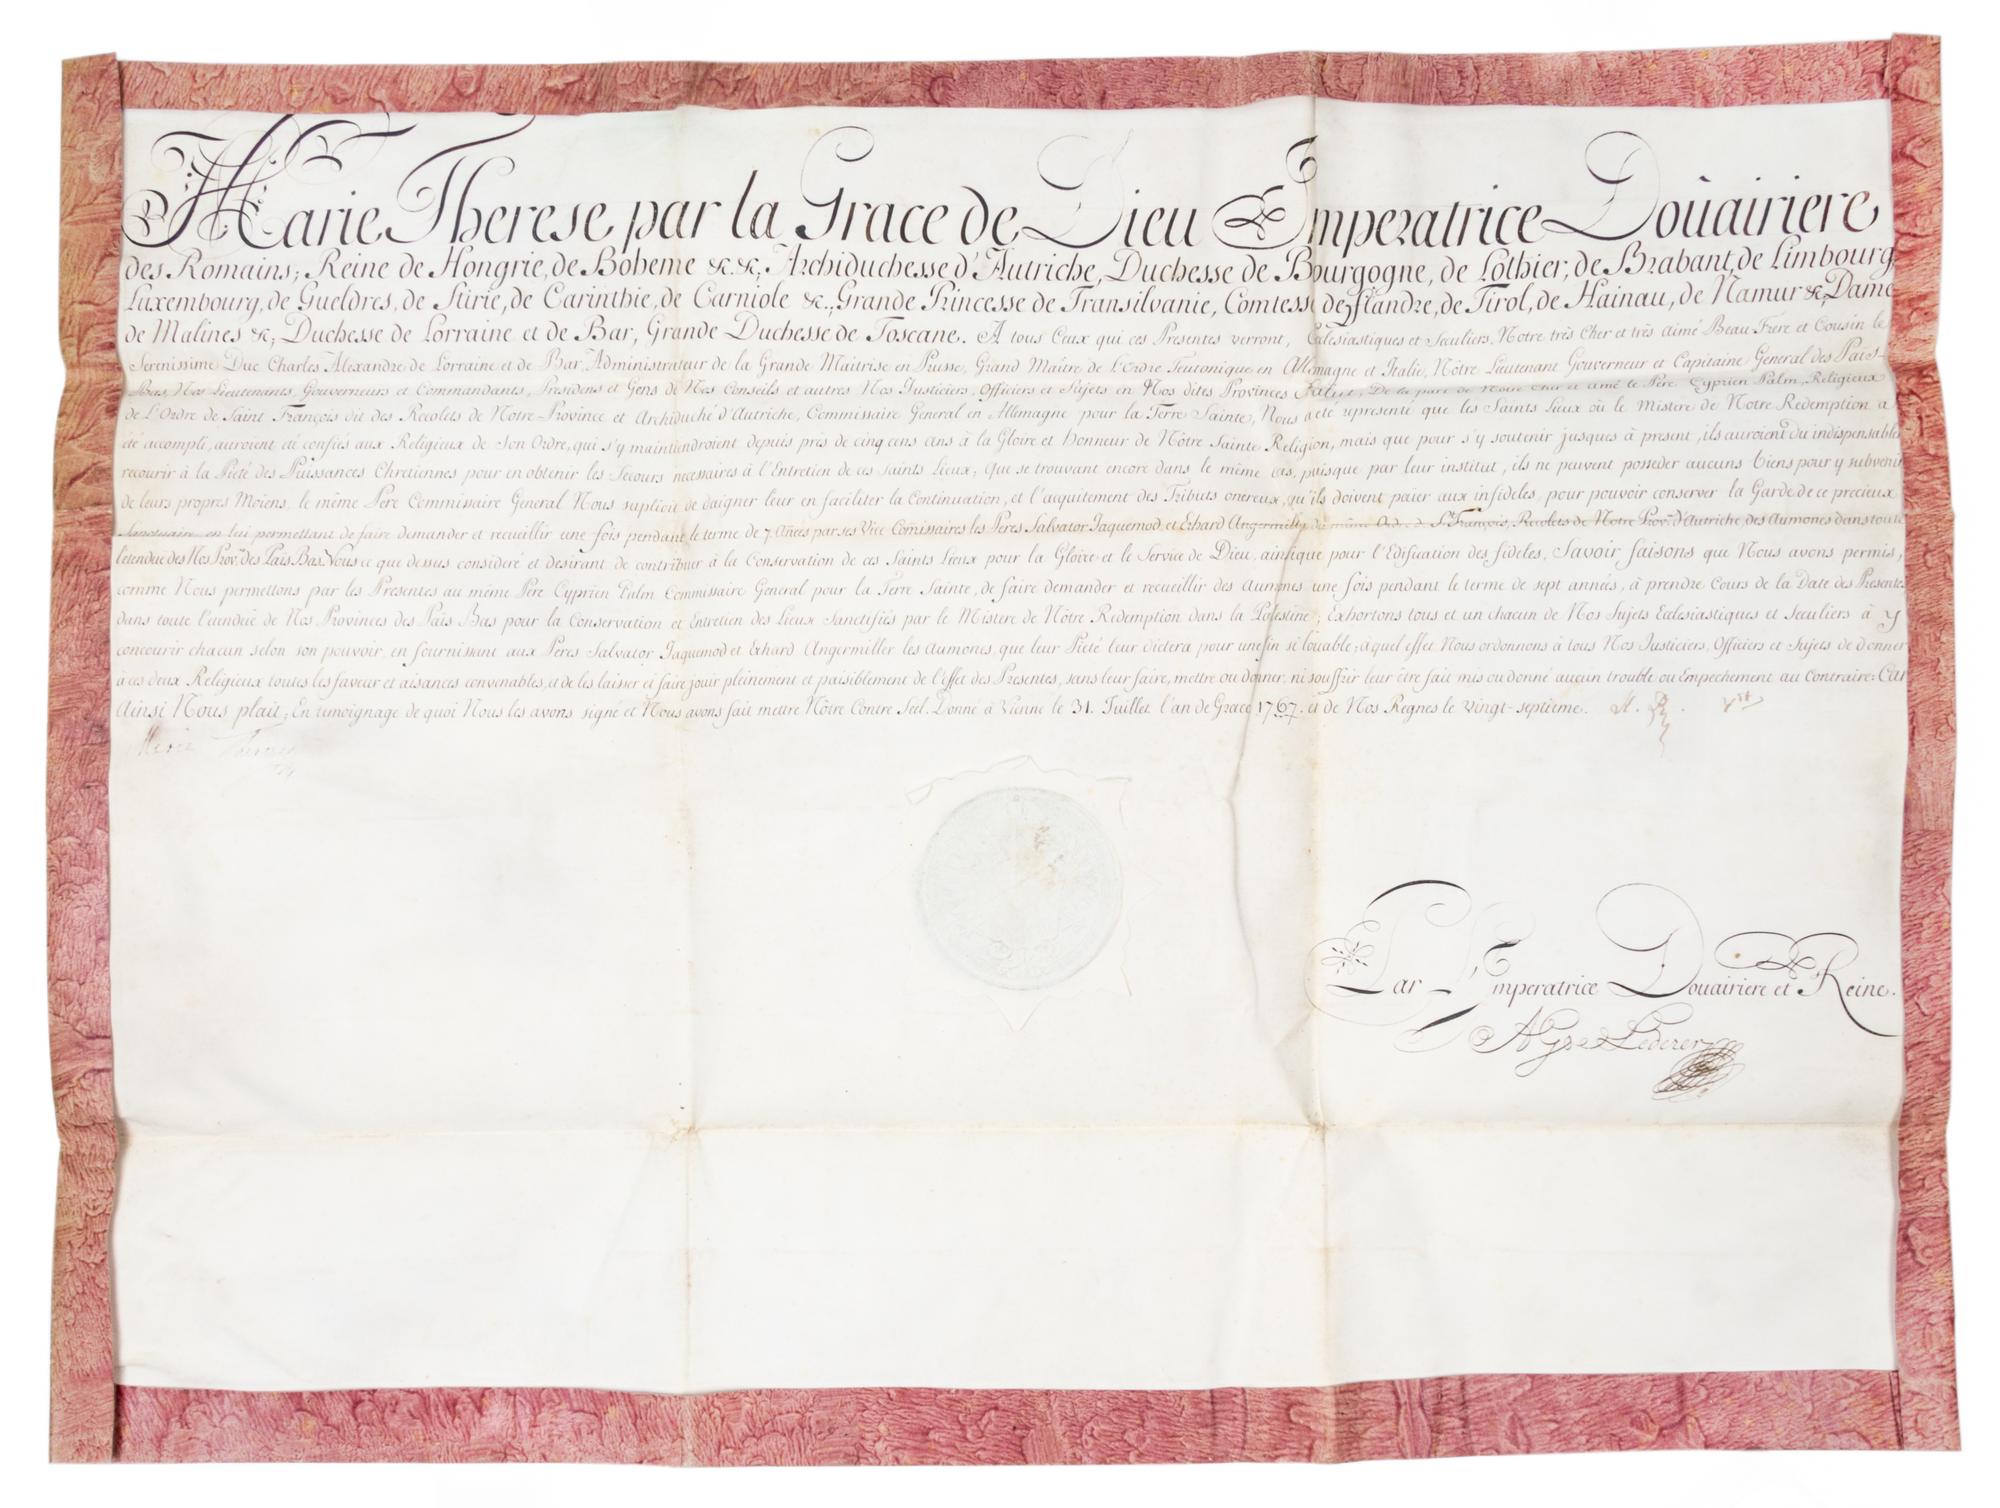 Marie Therese par la Grace de Dieu Imperatrice Doüairiere
des Romains; Reine de Hongrie, de Boheme &c. &c; Archiduchesse d'Autriche, Duchesse de Bourgogne, de Lothier, de Brabant, de Limbourg,
Luxembourg, de Gueldres, de Stirie, de Carinthie, de Carniole &c., Grande Princesse de Transilvanie, Comtesse de Flandre, de Tirol, de Hainau, de Namur &c, Dame
de Malines &c; Duchesse de Lorraine et de Bar, Grande Duchesse de Toscane. A tous Ceux qui ces Presentes verront, Eclesiastiques et Seculiers, Notre très Cher et très aimé Beau-Frere et Cousin le
Serenissime Duc Charles Alexandre de Lorraine et de Bar, Administrateur de la Grande Maitrise en Prusse, Grand Maître de L'Ordre Teutonique en Allemagne et Italie, Nôtre Lieutenant Gouverneur et Capitaine General des Païs-
Bas, Nos Lieutenants, Gouverneurs et Commandants, Presidens et Gens de Nos Conseils et autres Nos Justiciers, Officiers et Sujets en Nos dites Provinces Salut, De la part de Notre cher et amé le Pere, Cyprien Palm, Religieux
de L'Ordre de Saint François dit des Recolets de Notre Province et Archiduché d'Autriche, Commissaire General en Allemagne pour la Terre Sainte, Nous a eté representé que les Saints Lieux où le Mistere de Notre Redemption a
été accompli, auroient eté confiés aux Religieux de Son Ordre, qui s'y maintiendroient depuis près de cinq cens ans à la Gloire et Honneur de Nôtre Sainte Religion, mais que pour s'y soutenir jusques à present, ils auroient du indispensable
recourir à la Piété des Puissances Chretiennes pour en obtenir les Secours necessaires à l'Entretien de ces saints Lieux; Que se trouvant encore dans le même cas, puisque par leur institut, ils ne peuvent posseder aucuns biens pour y subvenir
de leurs propres Moiens, le même Pere Commissaire General Nous suplioit de daigner leur en faciliter la Continuation, et l'acquitement des Tributs onereux, qu'ils doivent païer aux infideles, pour pouvoir conserver la Garde de ce precieux
Sanctuaire en lui permettant de faire demander et recueillir une fois pendant le terme de 7. Años par ses Vice Comissaires les Peres Salvator Jaquemod, et Erhard Angermiller du même Ordre de St. François, Recolets de Notre Prov. d'Autriche, des Aumones dans toute
l'etendue des Nos Prov. des Pais Bas. Vous ce que dessus consideré et desirant de contribuer à la Conservation de ces Saints Lieux pour la Gloire et le Service de Dieu, ainsi que pour l'Edification des fideles, Savoir faisons que Nous avons permis,
comme Nous permettons par les Presentes au même Pere Cyprien Palm Commissaire General pour la Terre Sainte, de faire demander et recueillir des Aumones une fois pendant le terme de sept années, à prendre Cours de la Date des Presentes
dans toute l'etenduë de Nos Provinces des Païs Bas pour la Conservation et Entretien des Lieux Sanctifiés par le Mistere de Nôtre Redemption dans la Palestine; Exhortons tous et un chacun de Nos Sujets Eclesiastiques et Seculiers à y
concourir chacun selon son pouvoir, en fournissant aux Peres Salvator Jaquemod et Erhard Angermiller les aumones, que leur Pieté leur dictera pour une fin si louable; à quel effet Nous ordonnons à tous Nos Justiciers, Officiers et Sujets de donner
à ces deux Religieux toutes les faveur et aisances convenables, et de les laisser et faire jouir pleinement et paisiblement de l'effet des Presentes, sans leur faire, mettre ou donner, ni souffrir leur être fait mis ou donné aucun trouble ou Empechement au Contraire: Car
Ainsi Nous plait; En temoignage de quoi Nous les avons signé et Nous avons fait mettre Nôtre Contre Séel. Donné à Vienne le 31. Juillet l'an de Grace 1767. et de Nos Regnes le Vingt-septieme.
Marie Therese
Par L'Imperatrice Douairiere et Reine.
Lederer